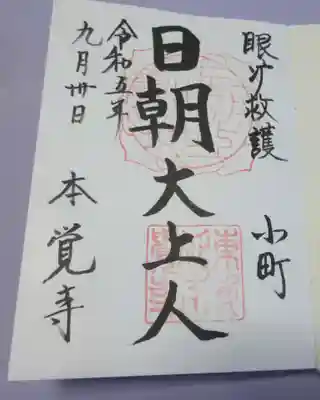 眼病救護
小町
日朝大上人
令和五年
九月卅日
本覚寺